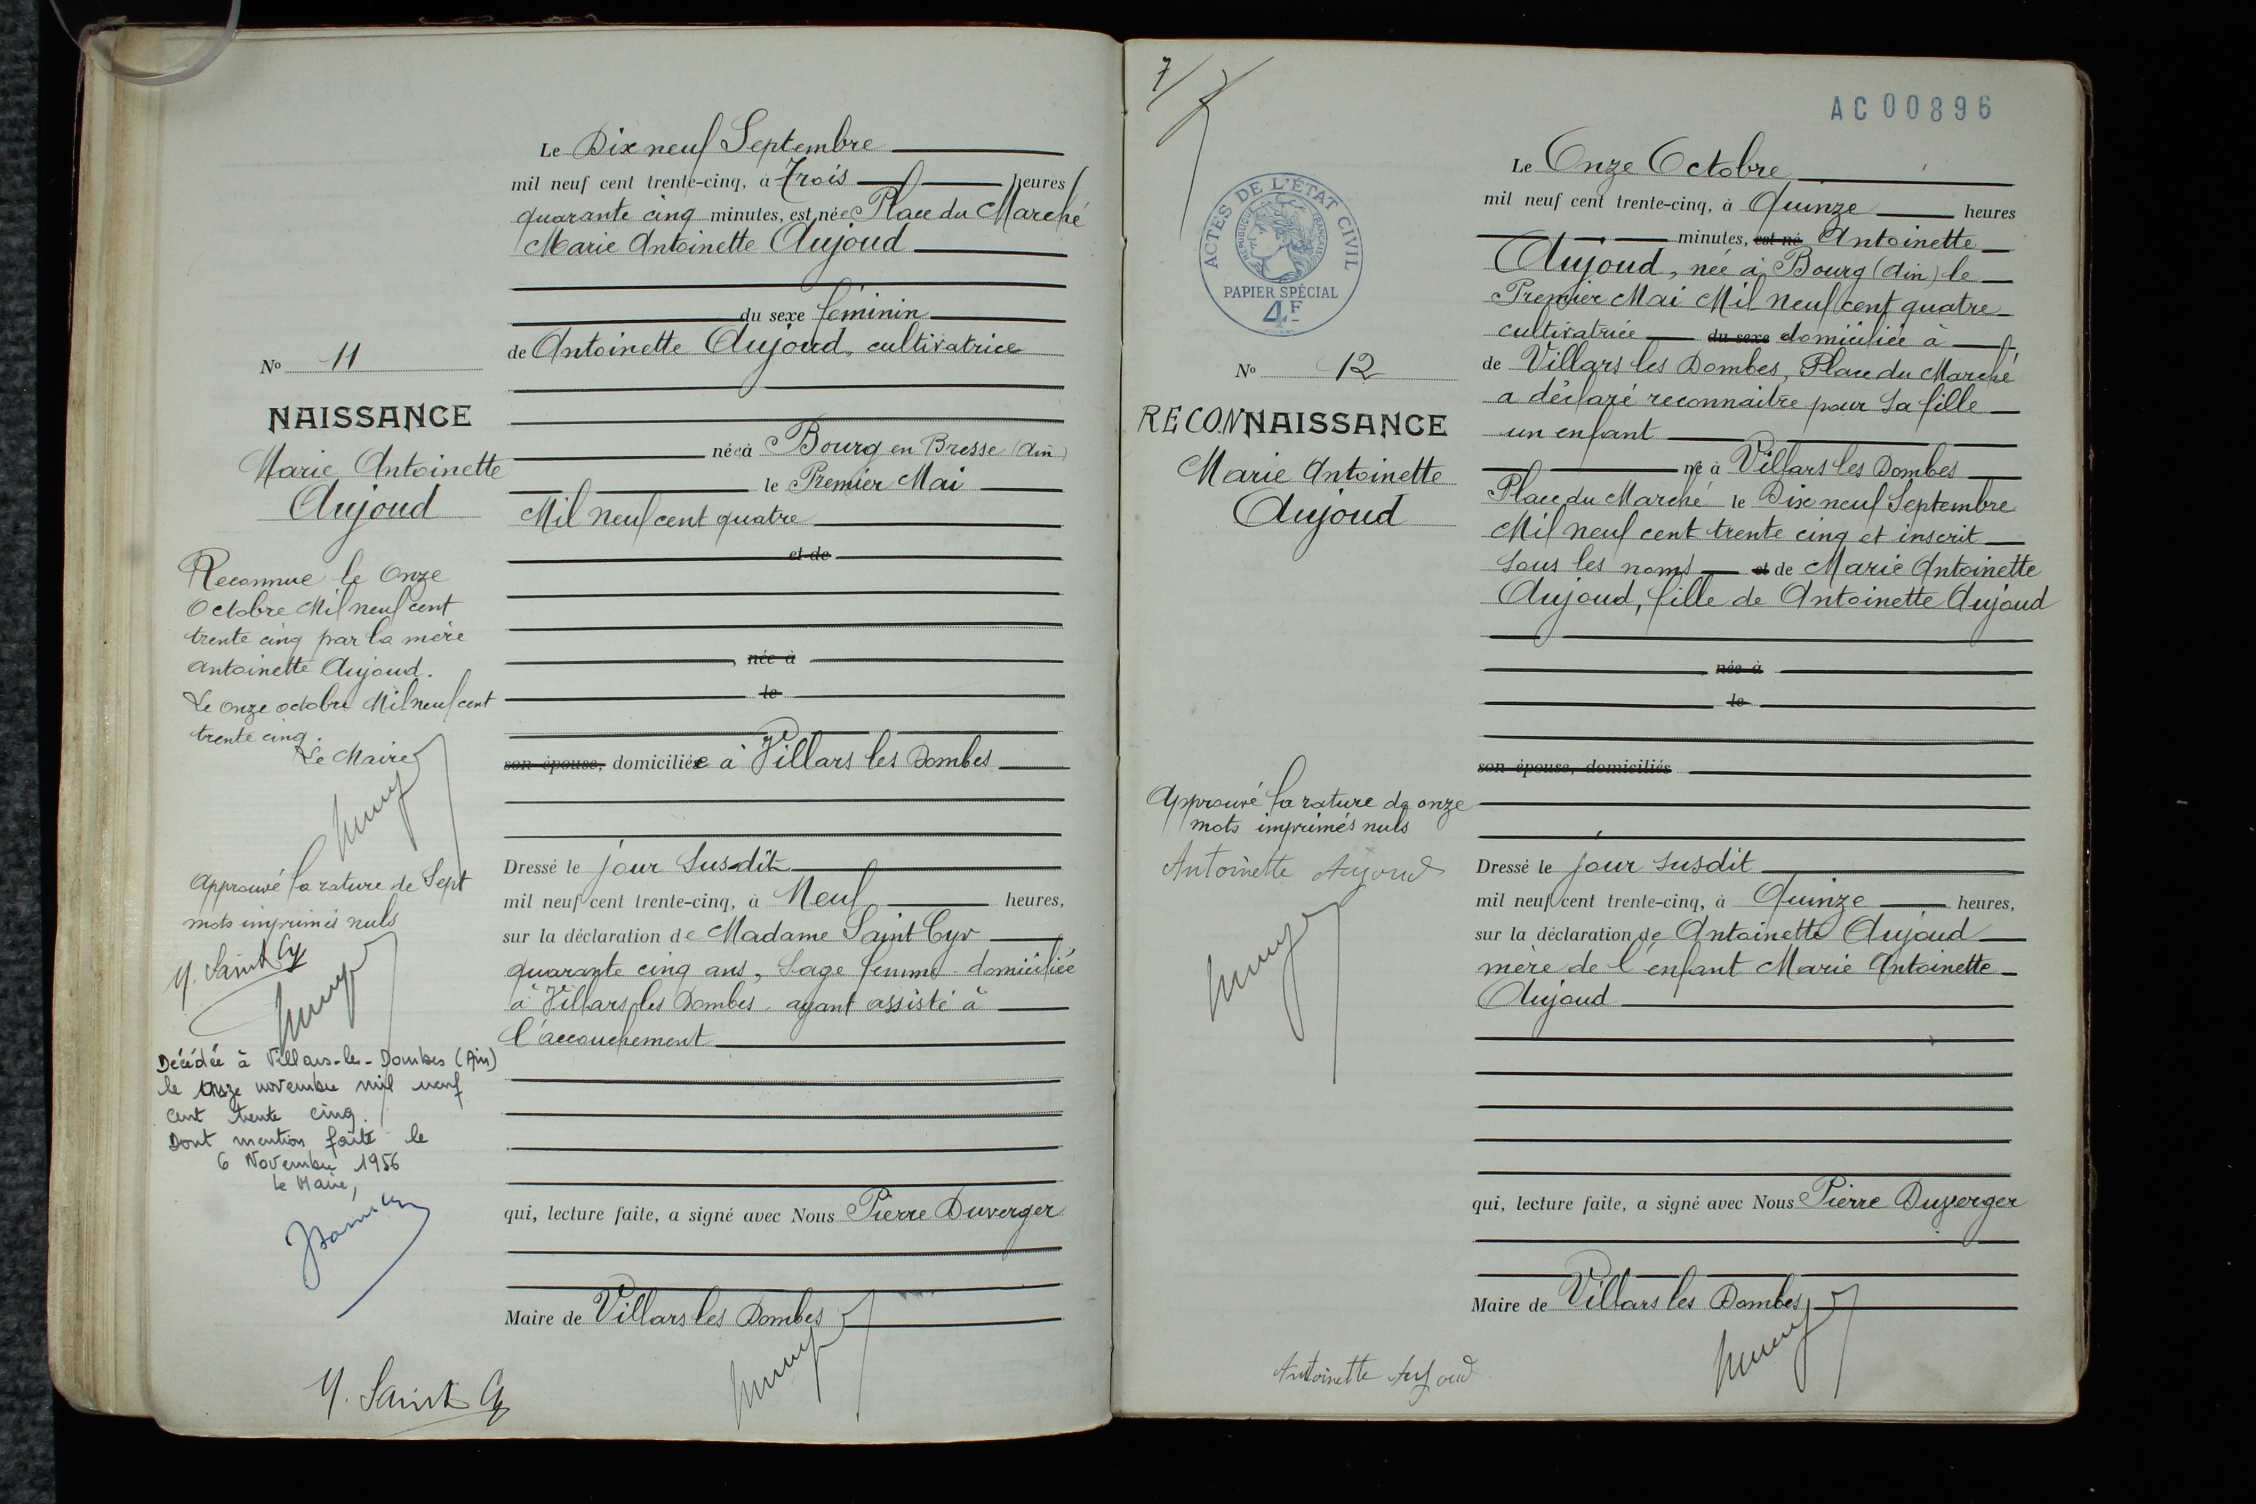 Le Dix neuf Septembre
mil neuf cent trente-cinq, à Trois heures
quarante cinq minutes, est née Place du Marché
Marie Antoinette Aujoud
du sexe féminin
de Antoinette Aujoud, cultivatrice
née à Bourg en Bresse (Ain)
le Premier Mai
Mil neuf cent quatre
et de
née à
le
son épouse, domiciliée à Villars les Dombes
Dressé le jour susdit
mil neuf cent trente-cinq, à Neuf heures,
sur la déclaration de Madame Saint Cyr
quarante cinq ans, Sage femme domiciliée
à Villars les Dombes ayant assisté à
l'accouchement
qui, lecture faite, a signé avec Nous Pierre Duverger
Maire de Villars les Dombes
No 11
NAISSANCE
Marie Antoinette
Aujoud
Reconnue le Onze
Octobre Mil neuf cent
trente cinq par la mère
Antoinette Aujoud.
Le onze octobre Mil neuf cent
trente cinq.
Le Maire
Approuvé la rature de Sept
mots imprimés nuls
M. Saint Cyr
Décédée à Villars-les-Dombes (Ain)
le onze novembre mil neuf
cent trente cinq.
Dont mention faite le
6 Novembre 1956
Le Maire,
M. Saint Cyr
7/
AC 00896
ACTES DE L'ÉTAT CIVIL
RÉPUBLIQUE FRANÇAISE
PAPIER SPÉCIAL
4F
No 12
RECONNAISSANCE
Marie Antoinette
Aujoud
Approuvé la rature de onze
mots imprimés nuls
Antoinette Aujoud
Le Onze Octobre
mil neuf cent trente-cinq, à Quinze heures
minutes, est né Antoinette
Aujoud, née à Bourg (Ain) le
Premier Mai Mil neuf cent quatre
cultivatrice du sexe domiciliée à
de Villars les Dombes, Place du Marché
a déclaré reconnaitre pour sa fille
un enfant
né à Villars les Dombes
Place du Marché le Dix neuf Septembre
Mil neuf cent trente cinq et inscrit
sous les noms et de Marie Antoinette
Aujoud, fille de Antoinette Aujoud
née à
le
son épouse, domiciliés
Dressé le jour susdit
mil neuf cent trente-cinq, à Quinze heures,
sur la déclaration de Antoinette Aujoud
mère de l'enfant Marie Antoinette
Aujoud
qui, lecture faite, a signé avec Nous Pierre Duverger
Maire de Villars les Dombes
Antoinette Aujoud